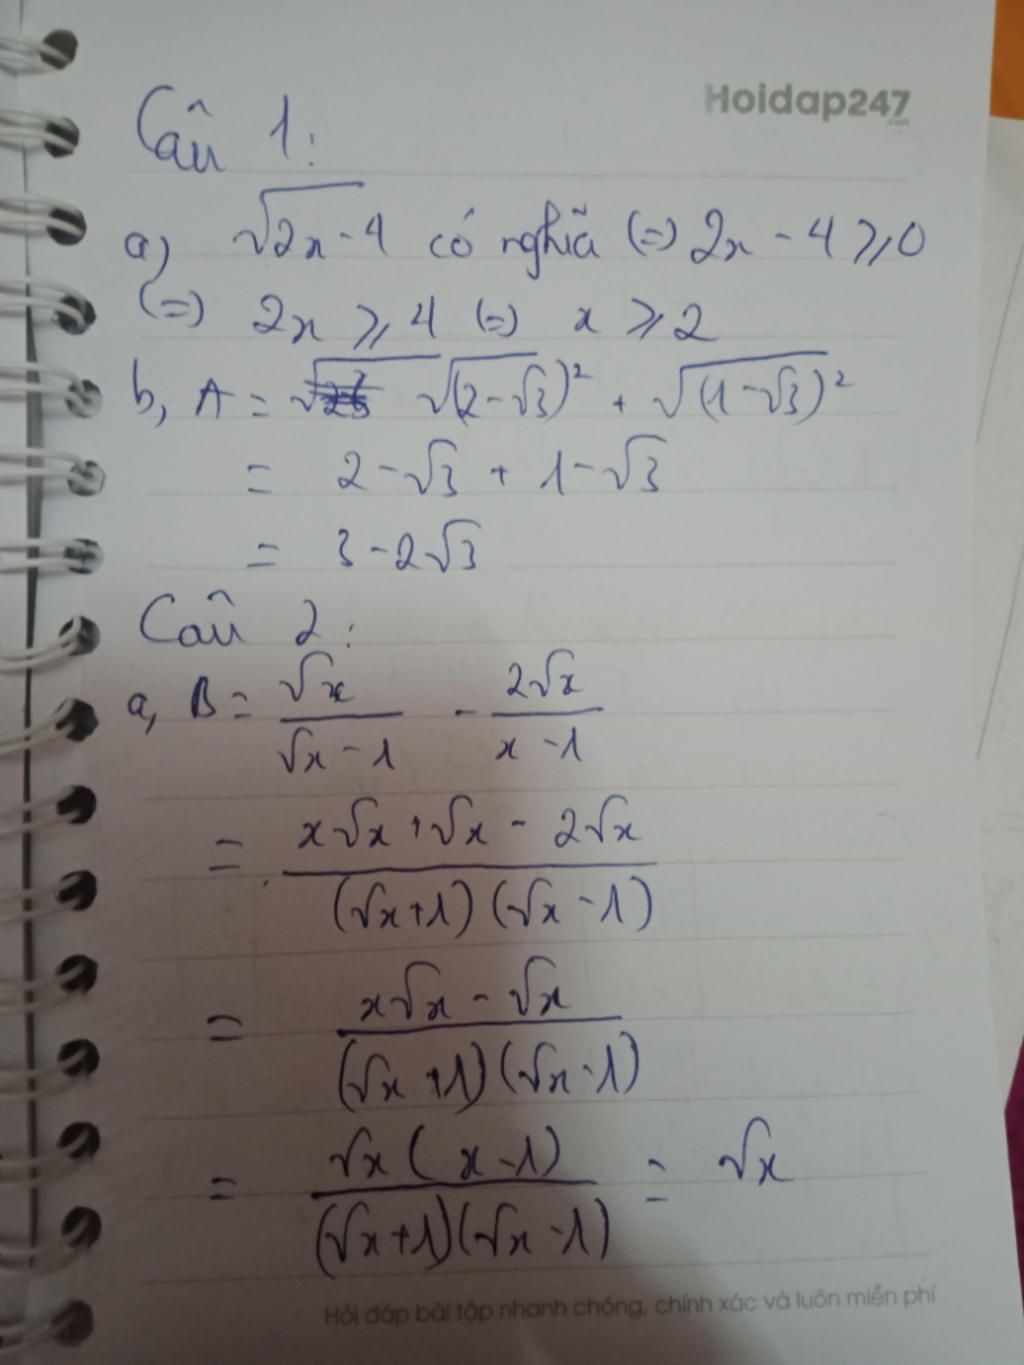 Hoidap247
.com
Câu 1:
a) √(2x-4) có nghĩa (=) 2x - 4 ≥ 0
(=) 2x ≥ 4 (=) x ≥ 2
b, A = √(2-√3)² + √(1-√3)²
= 2-√3 + 1-√3
= 3-2√3
Câu 2:
a, B = √x/(√x-1) - 2√x/(x-1)
= (x√x+√x-2√x)/((√x+1)(√x-1))
= (x√x-√x)/((√x+1)(√x-1))
= √x(x-1)/((√x+1)(√x-1)) = √x
Hỏi đáp bài tập nhanh chóng, chính xác và luôn miễn phí